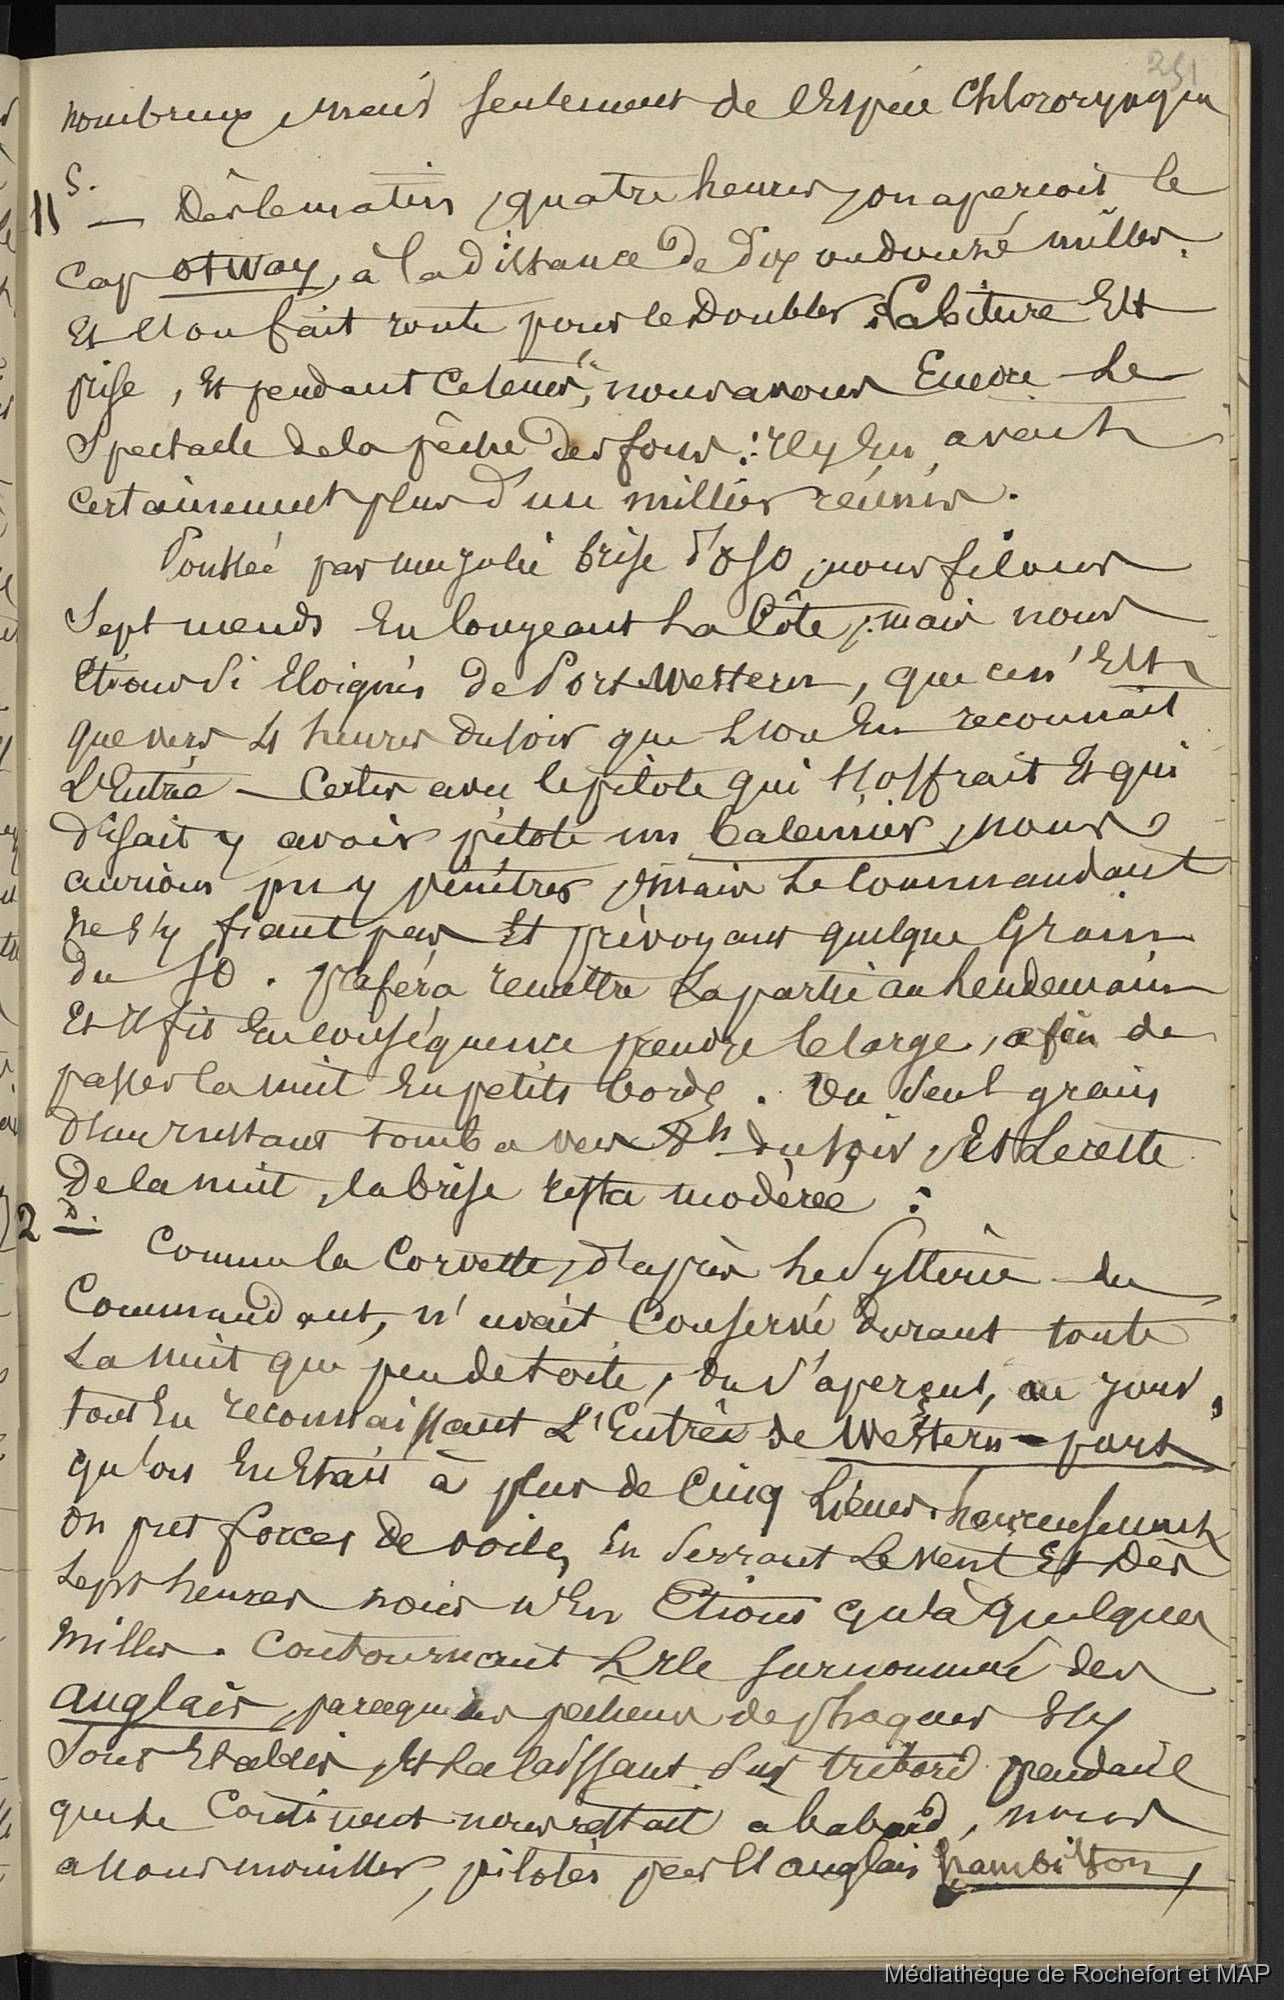 251
nombreux, mais seulement de l'Espèce Chlororynque
11 S. — Dès le matin, quatre heures, on aperçoit le
Cap Otway, à la distance de dix ou douze milles.
Et l'on fait route pour le doubler. La biture Est
prise, Et pendant ce tems, nous avons Encore Le
Spectacle de la pêche des fous : Il y En avait
certainement plus d'un millier réunis.
Poussée par une jolie brise d'OSO, nous filons
Sept nœuds En longeant La Côte, mais nous
Etions Si Eloignés de Port Western, que ce n'Est
que vers 4 heures du soir que L'on En reconnaît
L'Entrée — Certes avec le pilote qui s'offrait Et qui
disait y avoir piloté un baleinier, nous
aurions pu y pénétrer, mais Le Commandant
ne s'y fiant pas Et prévoyant quelque Grain
du SO. préféra remettre La partie au Lendemain
Et Il fit En conséquence prendre le large, afin de
passer la nuit En petits bords. Un Seul grain
d'un instant tomba vers 8h du soir, Et Le reste
De la nuit, la brise resta modérée :
2 D.
Comme la Corvette, d'après Le Système du
Commandant, n'avait Conservé durant toute
La nuit que peu de toile, On S'aperçut, au jour,
tout En reconnaissant L'Entrée de Western-port
qu'on En Etait à plus de Cinq Lieues. heureusement
On prit forces de voiles En Serrant Le vent Et Dès
Sept heures nous n'En Etions qu'à quelques
milles. Contournant L'Ile surnommée des
anglais, parce que des pêcheurs de phoques s'y
Sont Etablis, Et La laissant Sur tribord pendant
que Le Continent nous restait a babord, nous
allons mouiller, pilotés par l'anglais hambilton,
Médiathèque de Rochefort et MAP